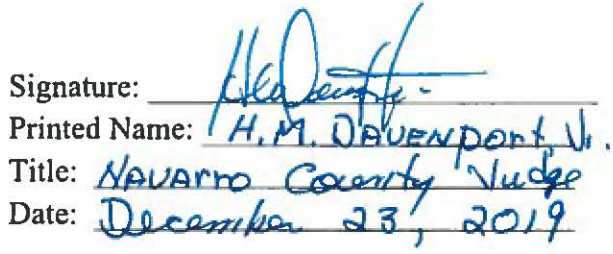 Signature:
Printed Name: H.M. DAVENPORT, Jr.
Title: NAVARRO County Judge
Date: December 23, 2019